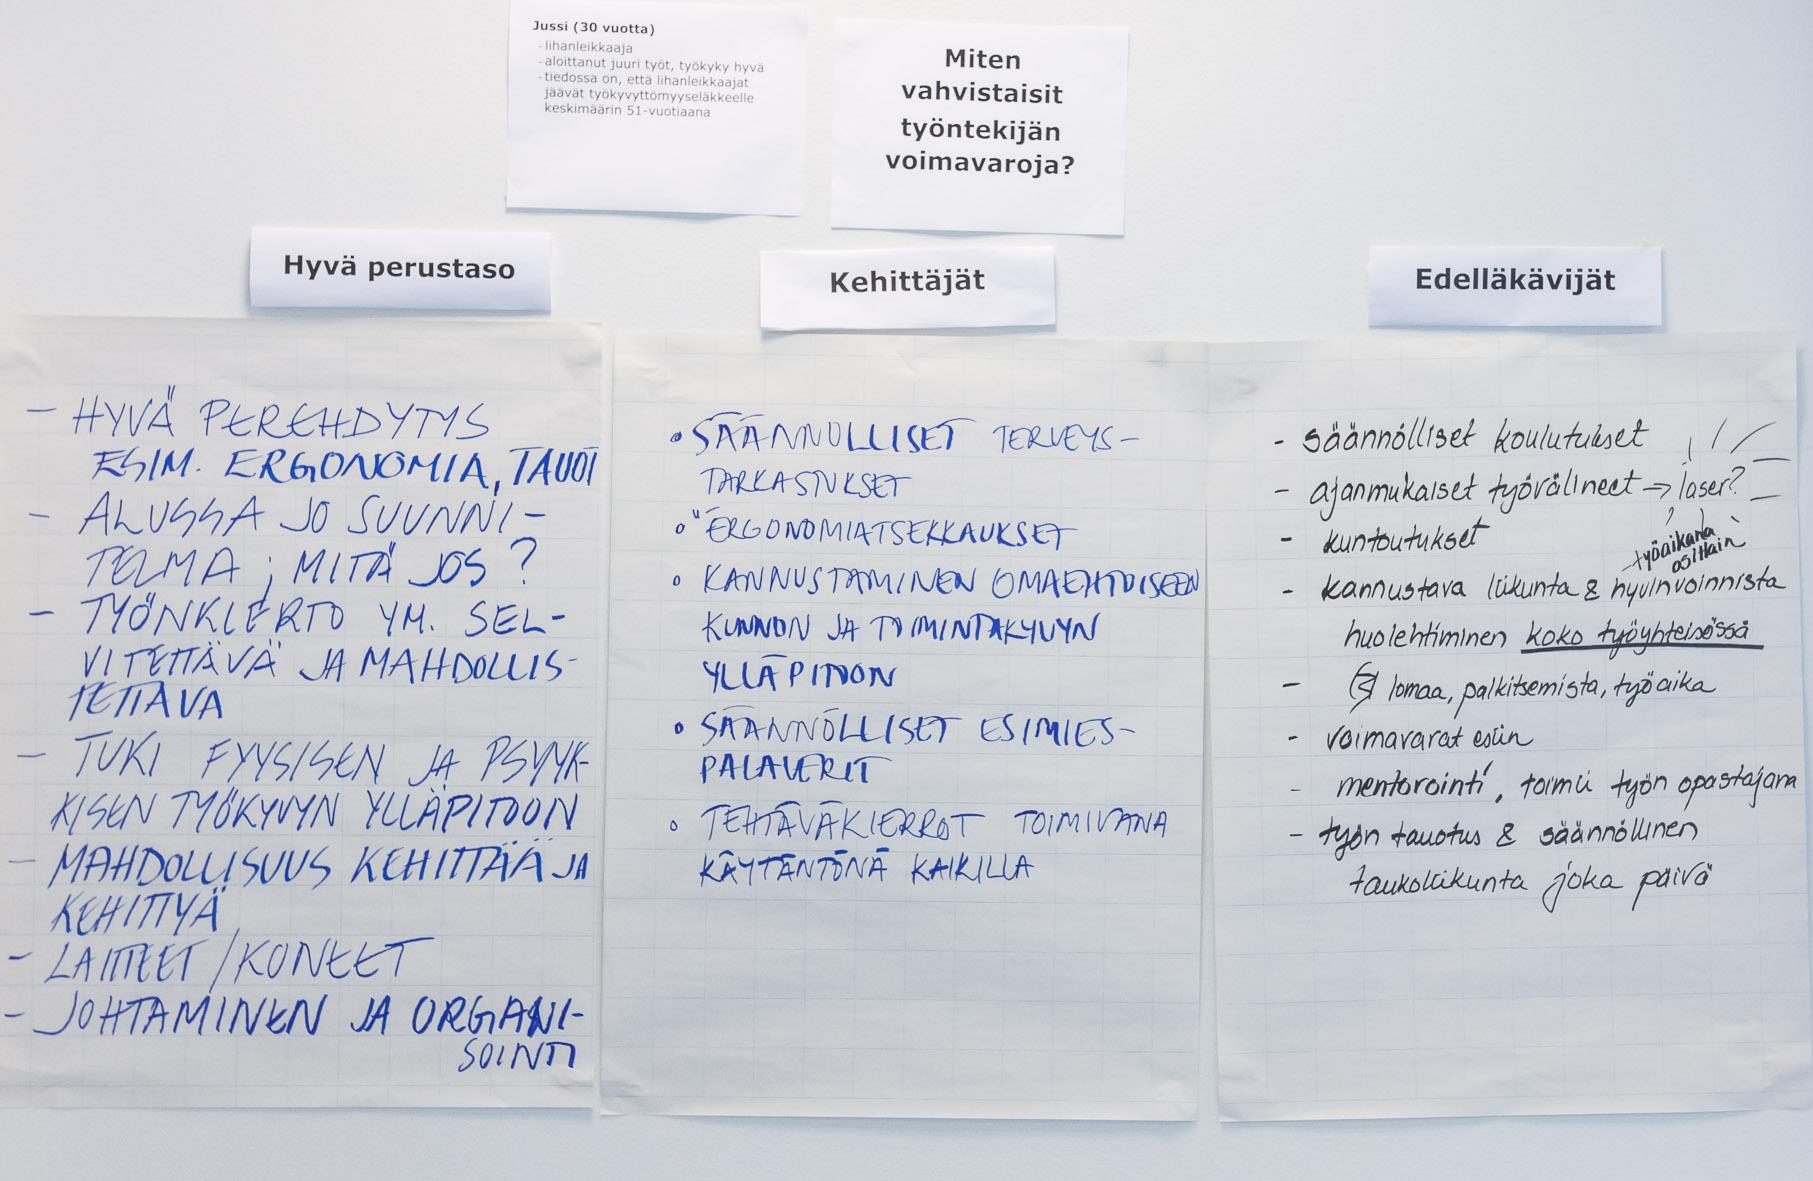 Jussi (30 vuotta)
- lihanleikkaaja
- aloittanut juuri työt, työkyky hyvä
- tiedossa on, että lihanleikkaajat
jäävät työkyvyttömyyseläkkeelle
keskimäärin 51-vuotiaana
Miten
vahvistaisit
työntekijän
voimavaroja?
Hyvä perustaso
- HYVÄ PEREHDYTYS
ESIM. ERGONOMIA, TAUOT
- ALUSSA JO SUUNNI-
TELMA ; MITÄ JOS ?
- TYÖNKIERTO YM. SEL-
VITETTÄVÄ JA MAHDOLLIS-
TETTAVA
- TUKI FYYSISEN JA PSYYK-
KISEN TYÖKYVYN YLLÄPITOON
- MAHDOLLISUUS KEHITTÄÄ JA
KEHITTYÄ
- LAITTEET / KONEET
- JOHTAMINEN JA ORGANI-
SOINTI
Kehittäjät
• SÄÄNNÖLLISET TERVEYS-
TARKASTUKSET
• "ERGONOMIATSEKKAUKSET
• KANNUSTAMINEN OMAEHTOISEEN
KUNNON JA TOIMINTAKYVYN
YLLÄPITOON
• SÄÄNNÖLLISET ESIMIES-
PALAVERIT
• TEHTÄVÄKIERROT TOIMIVANA
KÄYTÄNTÖNÄ KAIKILLA
Edelläkävijät
- säännölliset koulutukset
- ajanmukaiset työvälineet → laser?
- kuntoutukset
työaikana
osittain
- kannustava liikunta & hyvinvoinnista
huolehtiminen koko työyhteisössä
- lomaa, palkitsemista, työaika
- voimavarat esiin
- mentorointi, toimii työn opastajana
- työn tauotus & säännöllinen
taukoliikunta joka päivä